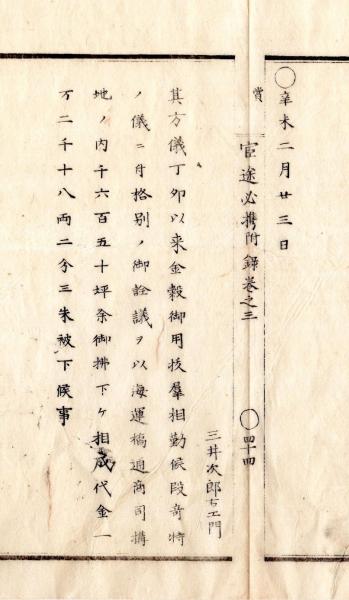 辛未二月廿三日
賞
官途必携附録巻之三
四十四
三井次郎右エ門
其方儀丁卯以来金穀御用抜羣相勤候段奇特
ノ儀ニ付格別ノ御詮議ヲ以海運橋通商司搆
地ノ内千六百五十坪余御拂下ケ相成代金一
万二千十八両二分三朱被下候事